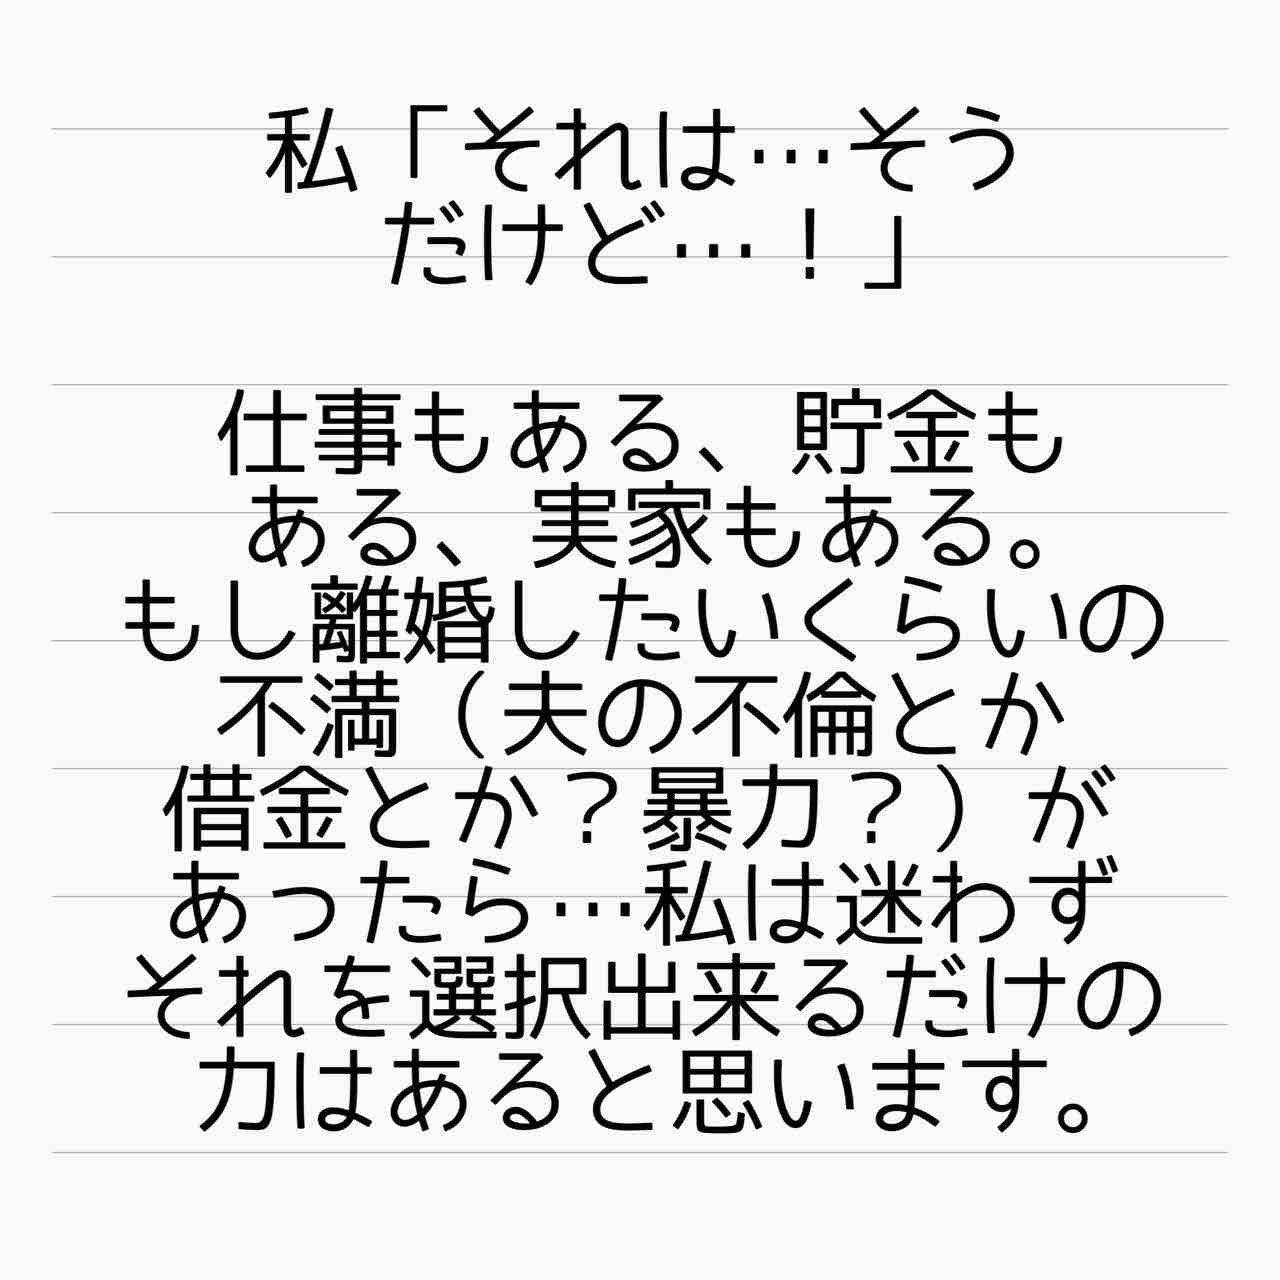 私「それは…そう
だけど…！」
仕事もある、貯金も
ある、実家もある。
もし離婚したいくらいの
不満（夫の不倫とか
借金とか？暴力？）が
あったら…私は迷わず
それを選択出来るだけの
力はあると思います。